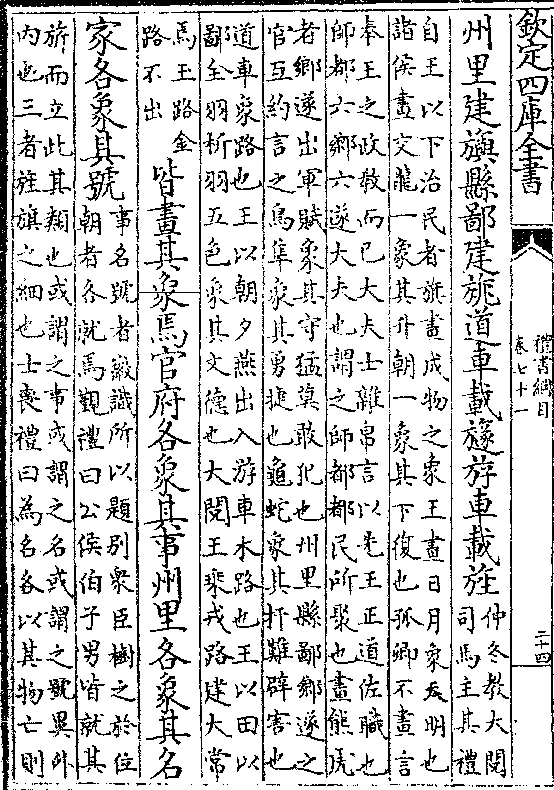 欽定四庫全書
禮書綱目
卷七十一
二十四
州里建旟縣鄙建旐道車載旞斿車載旌
仲冬教大閲
司馬主其禮
自王以下治民者旗畫成物之象王畫日月象天明也
諸侯畫交龍一象其升朝一象其下復也孤卿不畫言
奉王之政教而已大夫士雜帛言以先王正道佐職也
師都六鄉六遂大夫也謂之師都都民所聚也畫熊虎
者鄉遂出軍賦象其守猛莫敢犯也州里縣鄙鄉遂之
官互約言之鳥隼象其勇捷也龜蛇象其扞難辟害也
道車象路也王以朝夕燕出入游車木路也王以田以
鄙全羽析羽五色象其文德也大閲王乘戎路建大常
焉王路金
路不出
皆畫其象焉官府各象其事州里各象其名
家各象其號
事名號者徽識所以題别衆臣樹之於位
朝者各就焉覲禮曰公侯伯子男皆就其
旂而立此其類也或謂之事或謂之名或謂之號異外
内也三者旌旗之細也士喪禮曰為名各以其物亡則